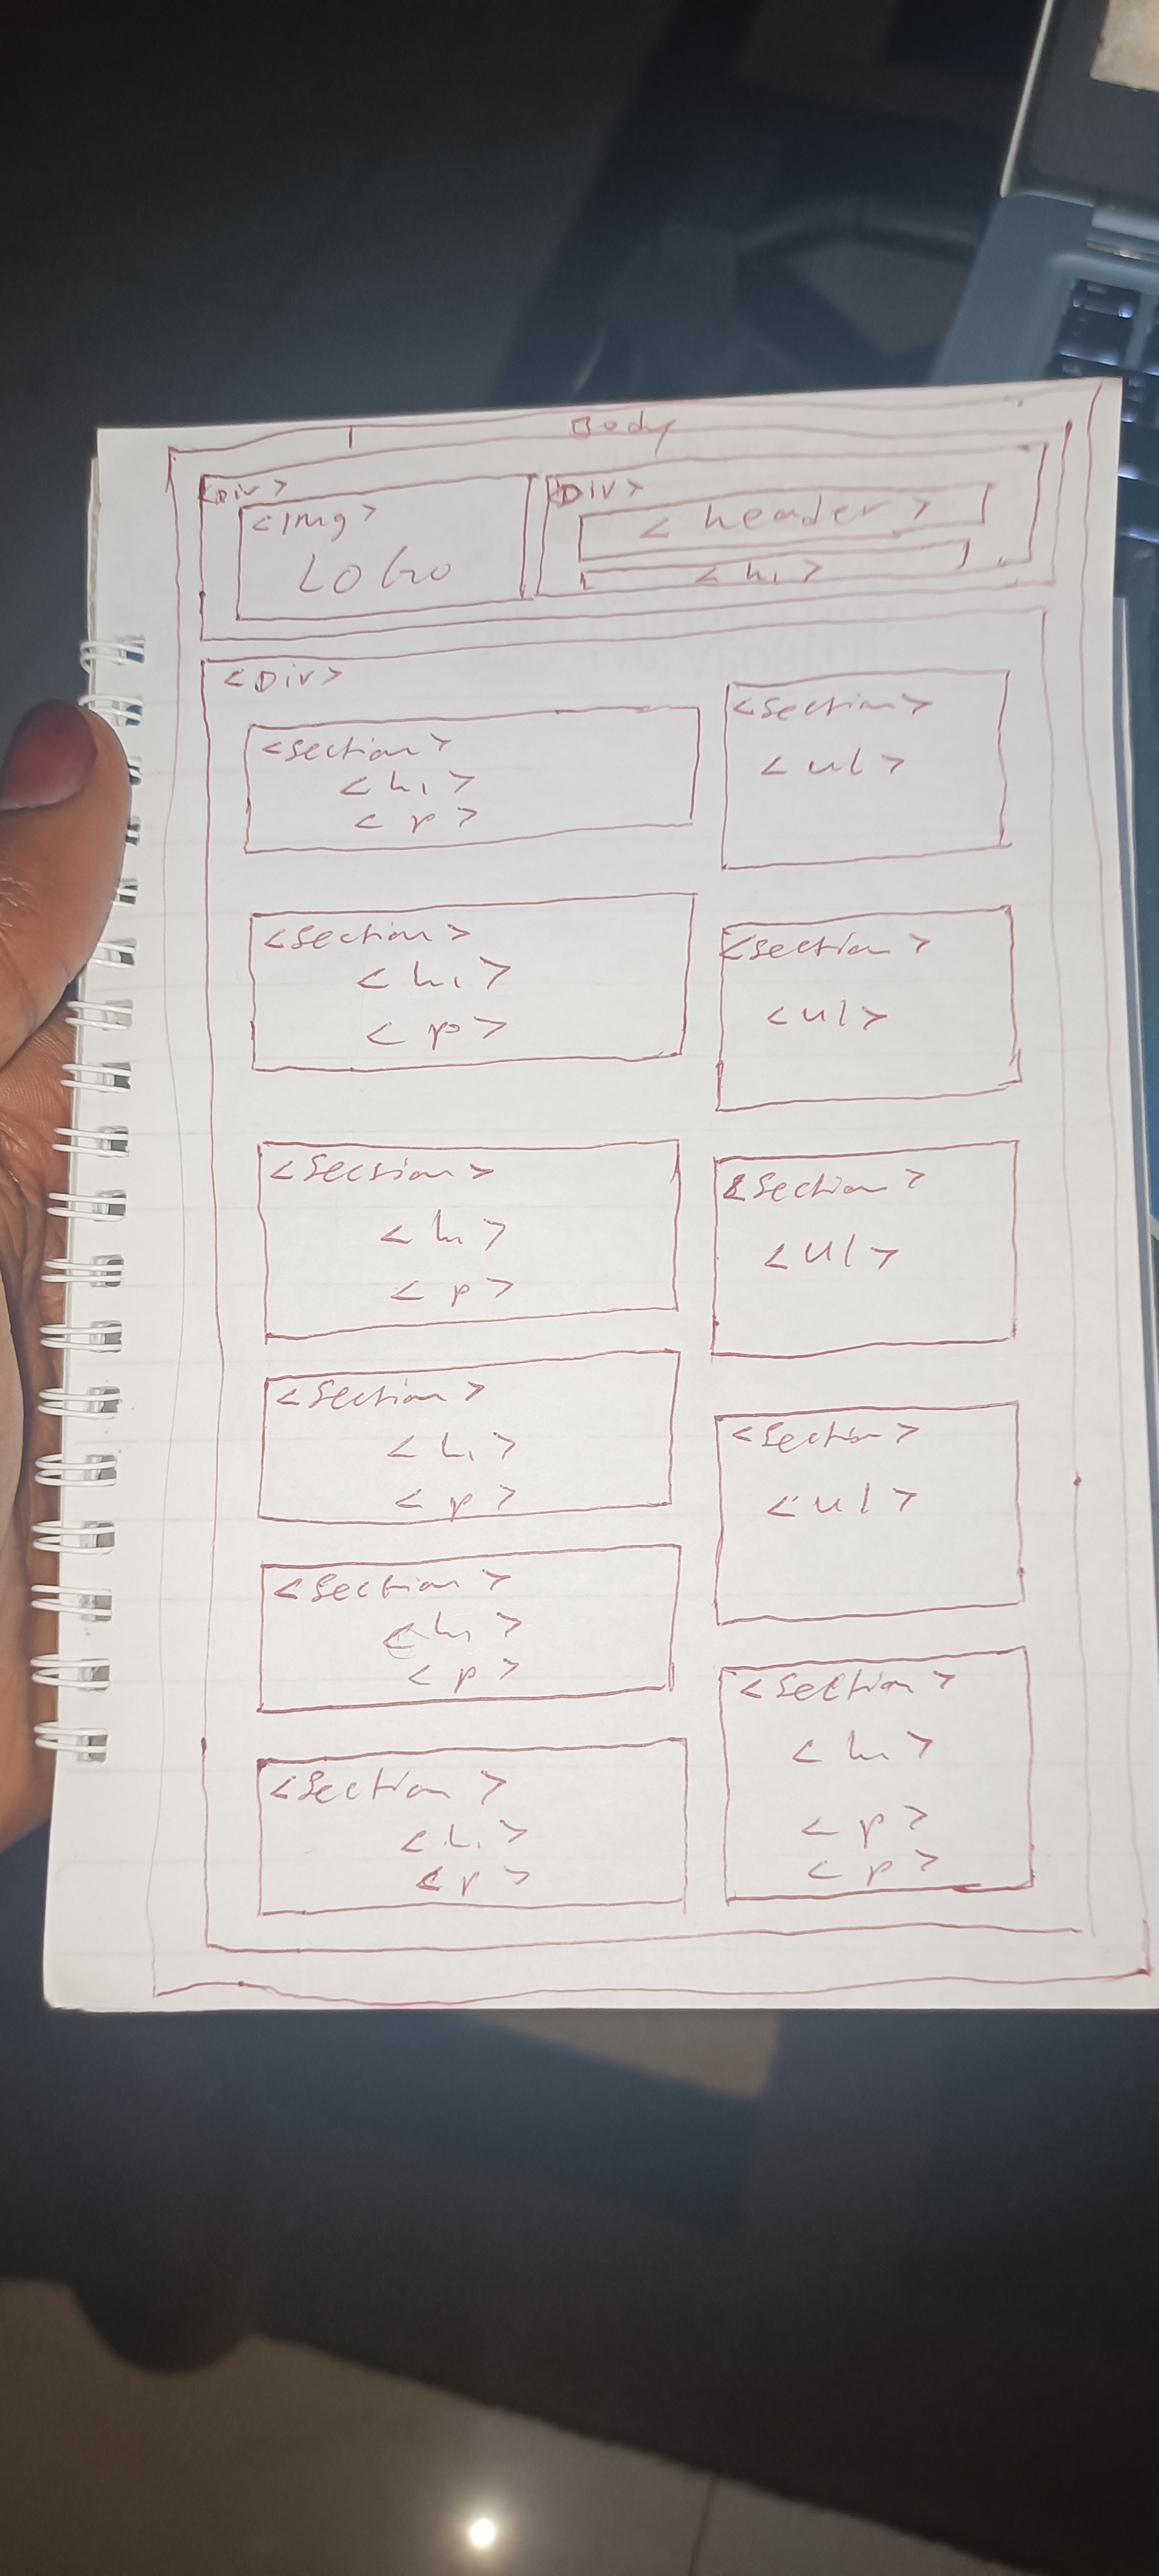 Body
<Div>
<Img>
LOGO
<Div>
<header>
<h1>
<Div>
<section>
<h1>
<p>
<section>
<h1>
<p>
<section>
<h1>
<p>
<section>
<h1>
<p>
<section>
<h1>
<p>
<section>
<h1>
<p>
<section>
<ul>
<section>
<ul>
<section>
<ul>
<section>
<ul>
<section>
<h1>
<p>
<p>